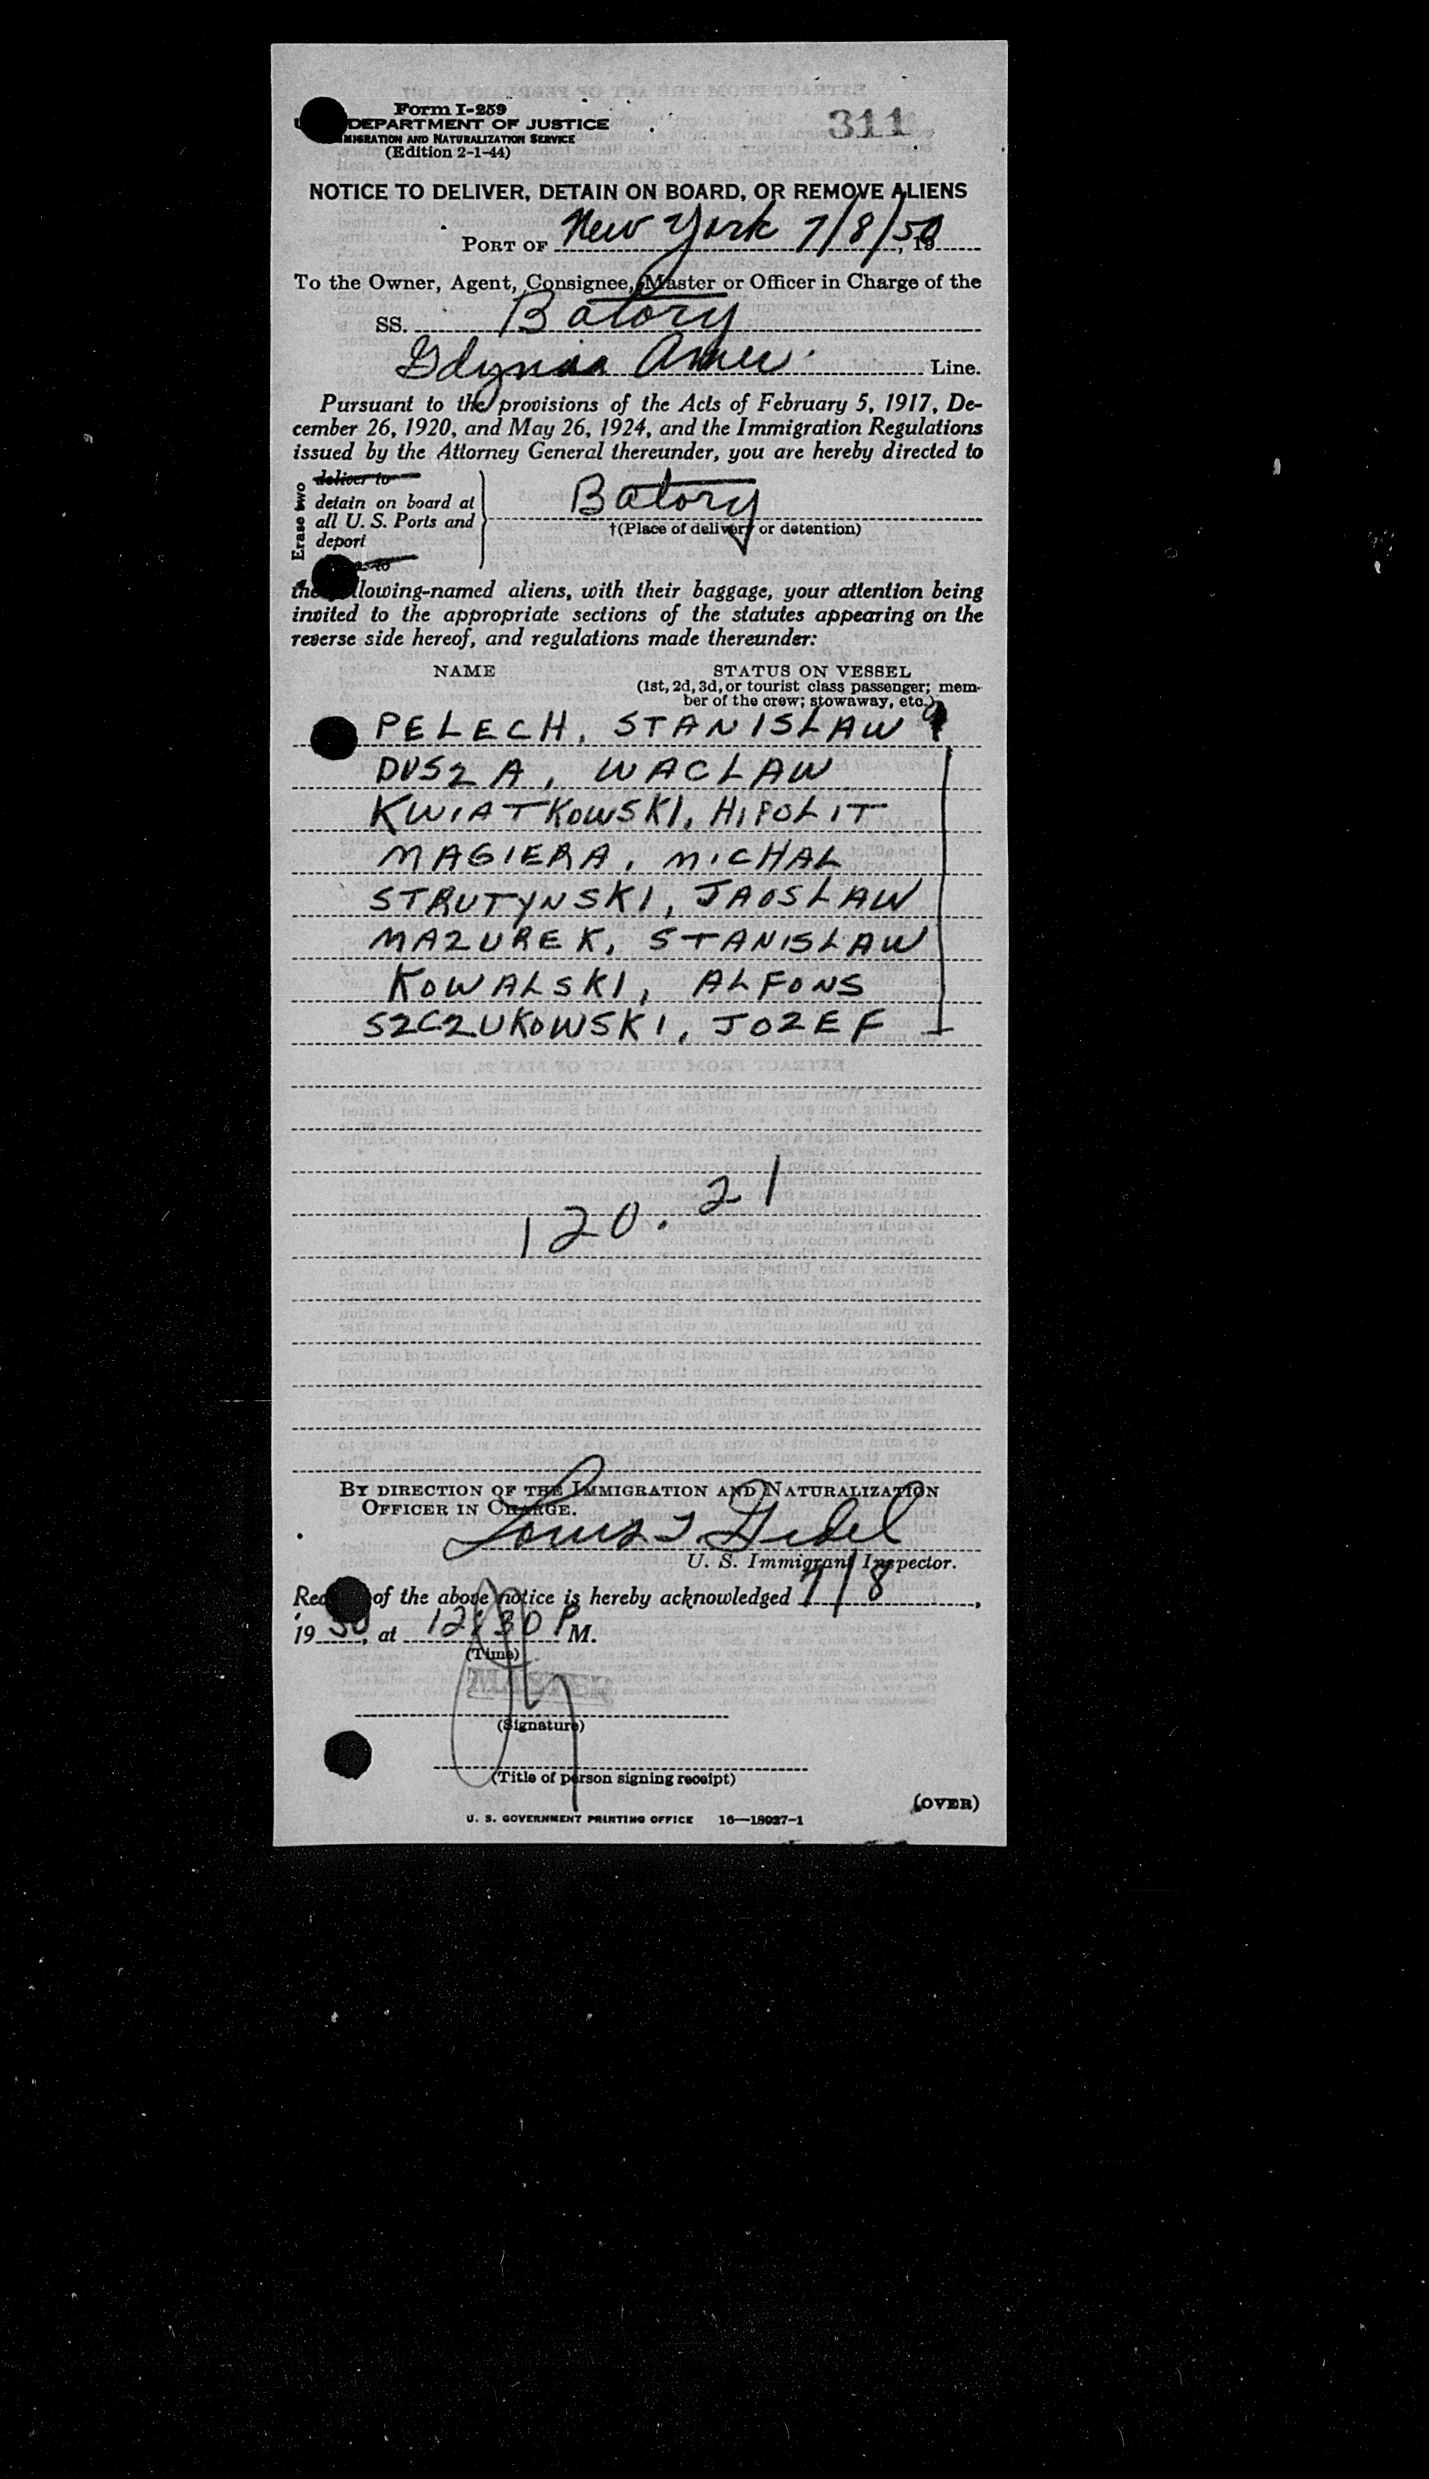 Form I-259
311
DEPARTMENT OF JUSTICE
MIGRATION AND NATURALIZATION SERVICE
(Edition 2-1-44)
NOTICE TO DELIVER, DETAIN ON BOARD, OR REMOVE ALIENS
PORT OF New York 7/8/50, 19
To the Owner, Agent, Consignee, Master or Officer in Charge of the
SS. Batory
Gdynia Amer. Line.
Pursuant to the provisions of the Acts of February 5, 1917, De-
cember 26, 1920, and May 26, 1924, and the Immigration Regulations
issued by the Attorney General thereunder, you are hereby directed to
Erase two
deliver to
detain on board at
all U. S. Ports and
deport
Batory
†(Place of delivery or detention)
the lowing-named aliens, with their baggage, your attention being
invited to the appropriate sections of the statutes appearing on the
reverse side hereof, and regulations made thereunder:
NAME STATUS ON VESSEL
(1st, 2d, 3d, or tourist class passenger; mem-
ber of the crew; stowaway, etc.)
PELECH, STANISLAW
DUSZA, WACLAW
KWIATKOWSKI, HIPOLIT
MAGIERA, MICHAL
STRUTYNSKI, JAOSLAW
MAZUREK, STANISLAW
KOWALSKI, ALFONS
SZCZUKOWSKI, JOZEF
120.21
BY DIRECTION OF THE IMMIGRATION AND NATURALIZATION
OFFICER IN CHARGE.
Louis
U. S. Immigrant Inspector.
of the above notice is hereby acknowledged 7/8,
19 50, at 12:30 P M.
(Time)
MASTER
(Signature)
(Title of person signing receipt)
(OVER)
U. S. GOVERNMENT PRINTING OFFICE 16—18027-1